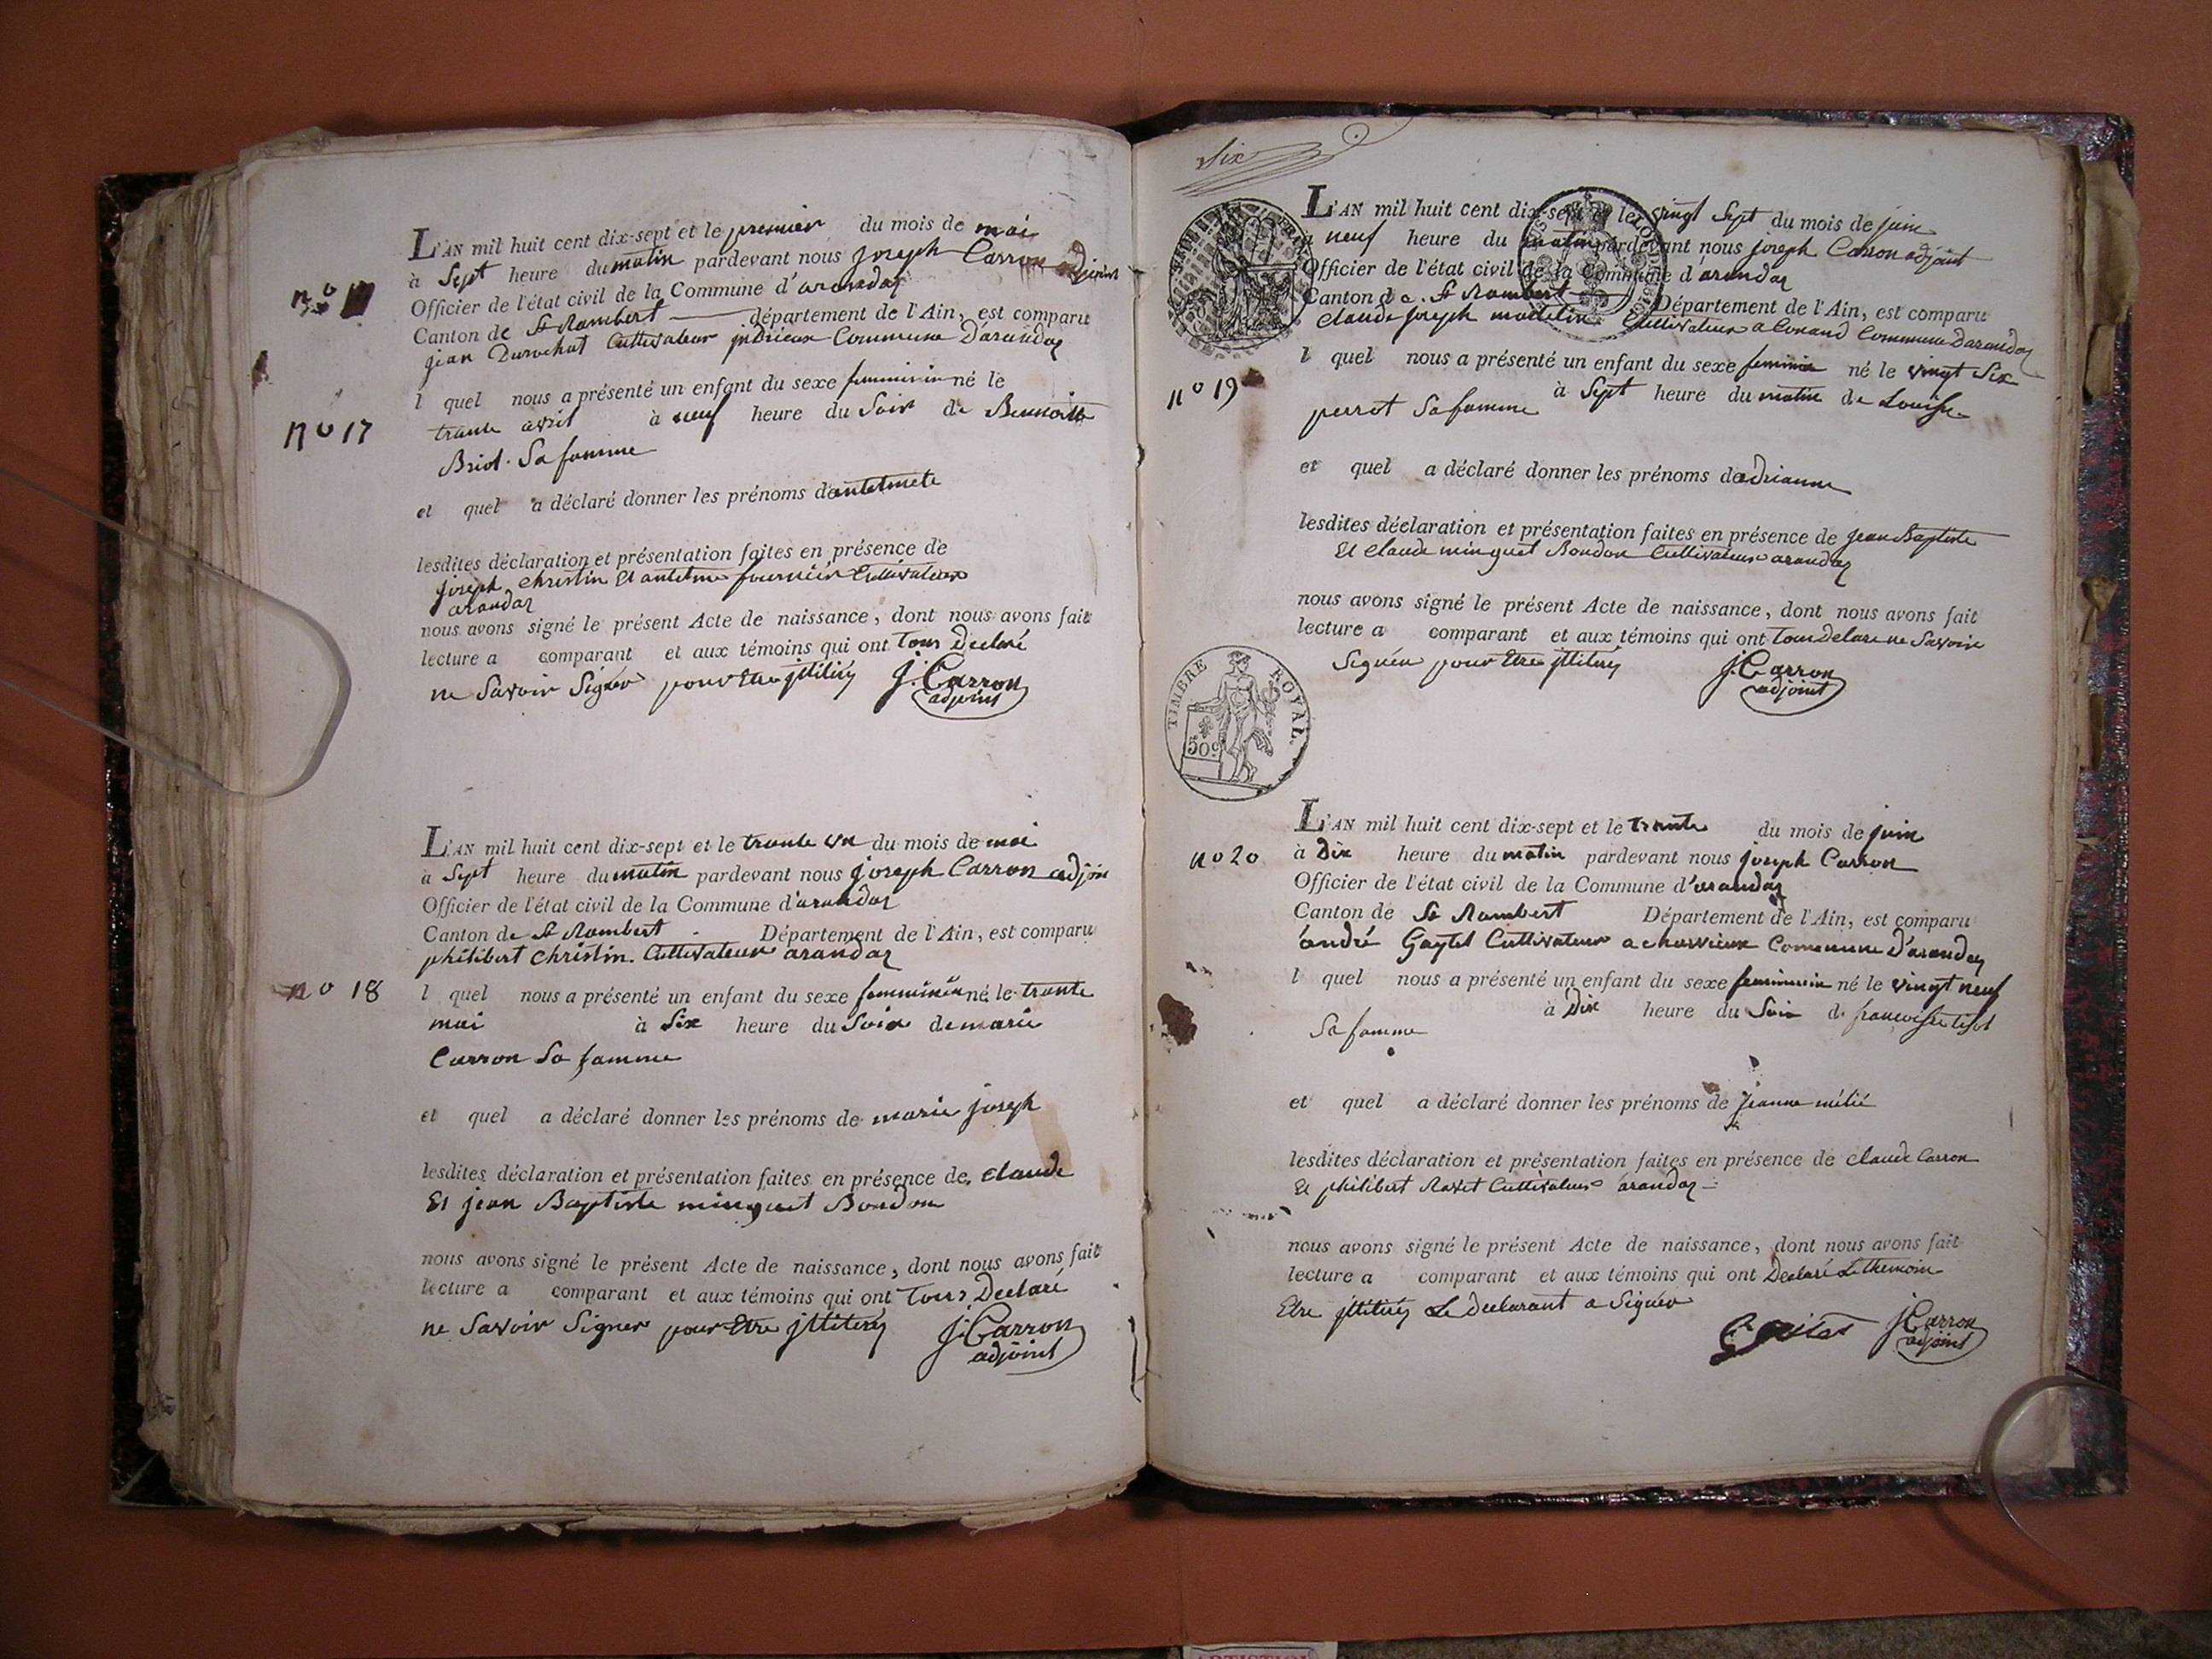 L'AN mil huit cent dix-sept et le premier du mois de mai
à Sept heure du matin pardevant nous joseph Carron adjoint
Officier de l'état civil de la Commune d'arandas
Canton de St Rambert département de l'Ain, est comparu
jean Cultivateur Commune D'arandas
l quel nous a présenté un enfant du sexe femminin né le
trante avril à neuf heure du Soir de Bennoitte
Briol Sa famme
et quel a déclaré donner les prénoms dantelmete
lesdites déclaration et présentation faites en présence de
joseph christin Et antelme fournier Cultivateur
arandas
nous avons signé le présent Acte de naissance, dont nous avons fait
lecture a comparant et aux témoins qui ont Tous Declaré
ne Savoir Signér pour Etre jllitéré J. Carron
adjoint
no 17
L'AN mil huit cent dix-sept et le trante un du mois de mai
à Sept heure du matin pardevant nous joseph Carron adjoin
Officier de l'état civil de la Commune d'arandas
Canton de St Rambert Département de l'Ain, est comparu
philibert christin. Cultivateur arandas
no 18
l quel nous a présenté un enfant du sexe femminin né le trante
mai à Six heure du Soir de marie
Carron Sa famme
et quel a déclaré donner les prénoms de marie joseph
lesdites déclaration et présentation faites en présence de claude
Et jean Baptiste minguet Bondon
nous avons signé le présent Acte de naissance, dont nous avons fait
lecture a comparant et aux témoins qui ont Tous Declaré
ne Savoir Signer pour Etre jllitéré J. Carron
adjoint
Six
L'AN mil huit cent dix-sept et le vingt Sept du mois de juin
à neuf heure du matin pardevant nous joseph Carron adjoint
Officier de l'état civil de la Commune d'arandas
Canton de St Rambert Département de l'Ain, est comparu
claude joseph Cultivateur a Conand Commune Darandas
no 19
l quel nous a présenté un enfant du sexe feminin né le vingt Six
à Sept heure du matin de Louise
perrot Sa famme
et quel a déclaré donner les prénoms dadrianne
lesdites déclaration et présentation faites en présence de jean Baptiste
Et claude minguet Bondon Cultivateur arandas
nous avons signé le présent Acte de naissance, dont nous avons fait
lecture a comparant et aux témoins qui ont Tous delare ne Savoir
Signér pour Etre jllitéré J. Carron
adjoint
TIMBRE ROYAL.
50c
L'AN mil huit cent dix-sept et le trante du mois de juin
no 20
à Dix heure du matin pardevant nous joseph Carron
Officier de l'état civil de la Commune d'arandas
Canton de St Rambert Département de l'Ain, est comparu
andré Gaytet Cultivateur a Commune D'arandas
l quel nous a présenté un enfant du sexe femininin né le vingt neuf
à Dix heure du Soir de francoise tisot
Sa famme
et quel a déclaré donner les prénoms de jeanne mélié
lesdites déclaration et présentation faites en présence de claude Carron
Et philibert Ravet Cultivateur arandas
nous avons signé le présent Acte de naissance, dont nous avons fait
lecture a comparant et aux témoins qui ont Declaré Le themoin
Etre jllitéré Le declarant a Signér
J. Carron
adjoint